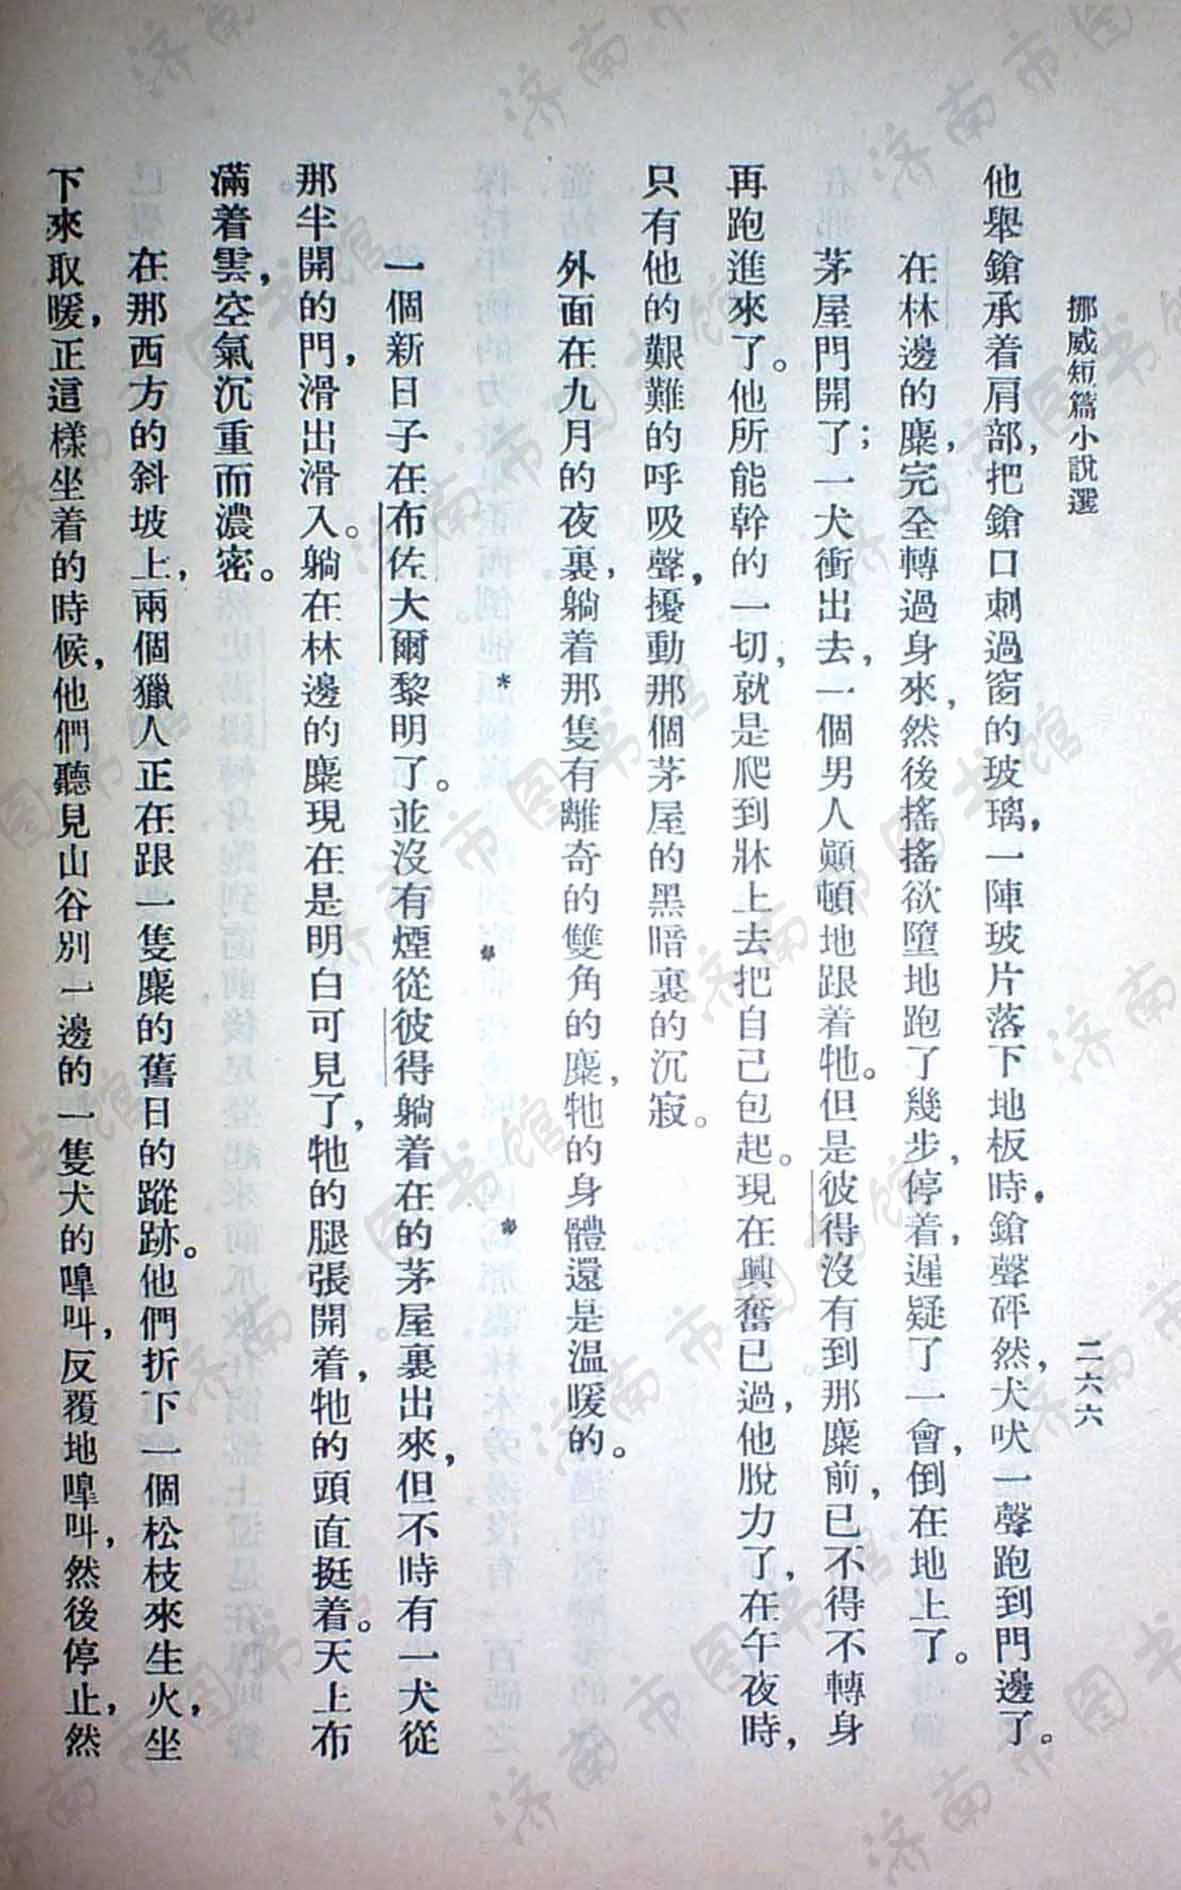 挪威短篇小說選
二六六
他舉鎗承着肩部，把鎗口刺過窗的玻璃，一陣玻片落下地板時，鎗聲砰然，犬吠一聲跑到門邊了。
在林邊的麋，完全轉過身來，然後搖搖欲墮地跑了幾步，停着，遲疑了一會，倒在地上了。
茅屋門開了；一犬衝出去，一個男人顚頓地跟着牠。但是彼得沒有到那麋前，已不得不轉身
再跑進來了。他所能幹的一切，就是爬到牀上去把自己包起。現在興奮已過，他脫力了，在午夜時，
只有他的艱難的呼吸聲，擾動那個茅屋的黑暗裏的沉寂。
外面在九月的夜裏，躺着那隻有離奇的雙角的麋，牠的身體還是温暖的。
* * *
一個新日子在布佐大爾黎明了。並沒有煙從彼得躺着在的茅屋裏出來，但不時有一犬從
那半開的門，滑出滑入。躺在林邊的麋現在是明白可見了，牠的腿張開着，牠的頭直挺着。天上布
滿着雲，空氣沉重而濃密。
在那西方的斜坡上，兩個獵人正在跟一隻麋的舊日的蹤跡。他們折下一個松枝來生火，坐
下來取暖，正這樣坐着的時候，他們聽見山谷別一邊的一隻犬的嘷叫，反覆地嘷叫，然後停止，然